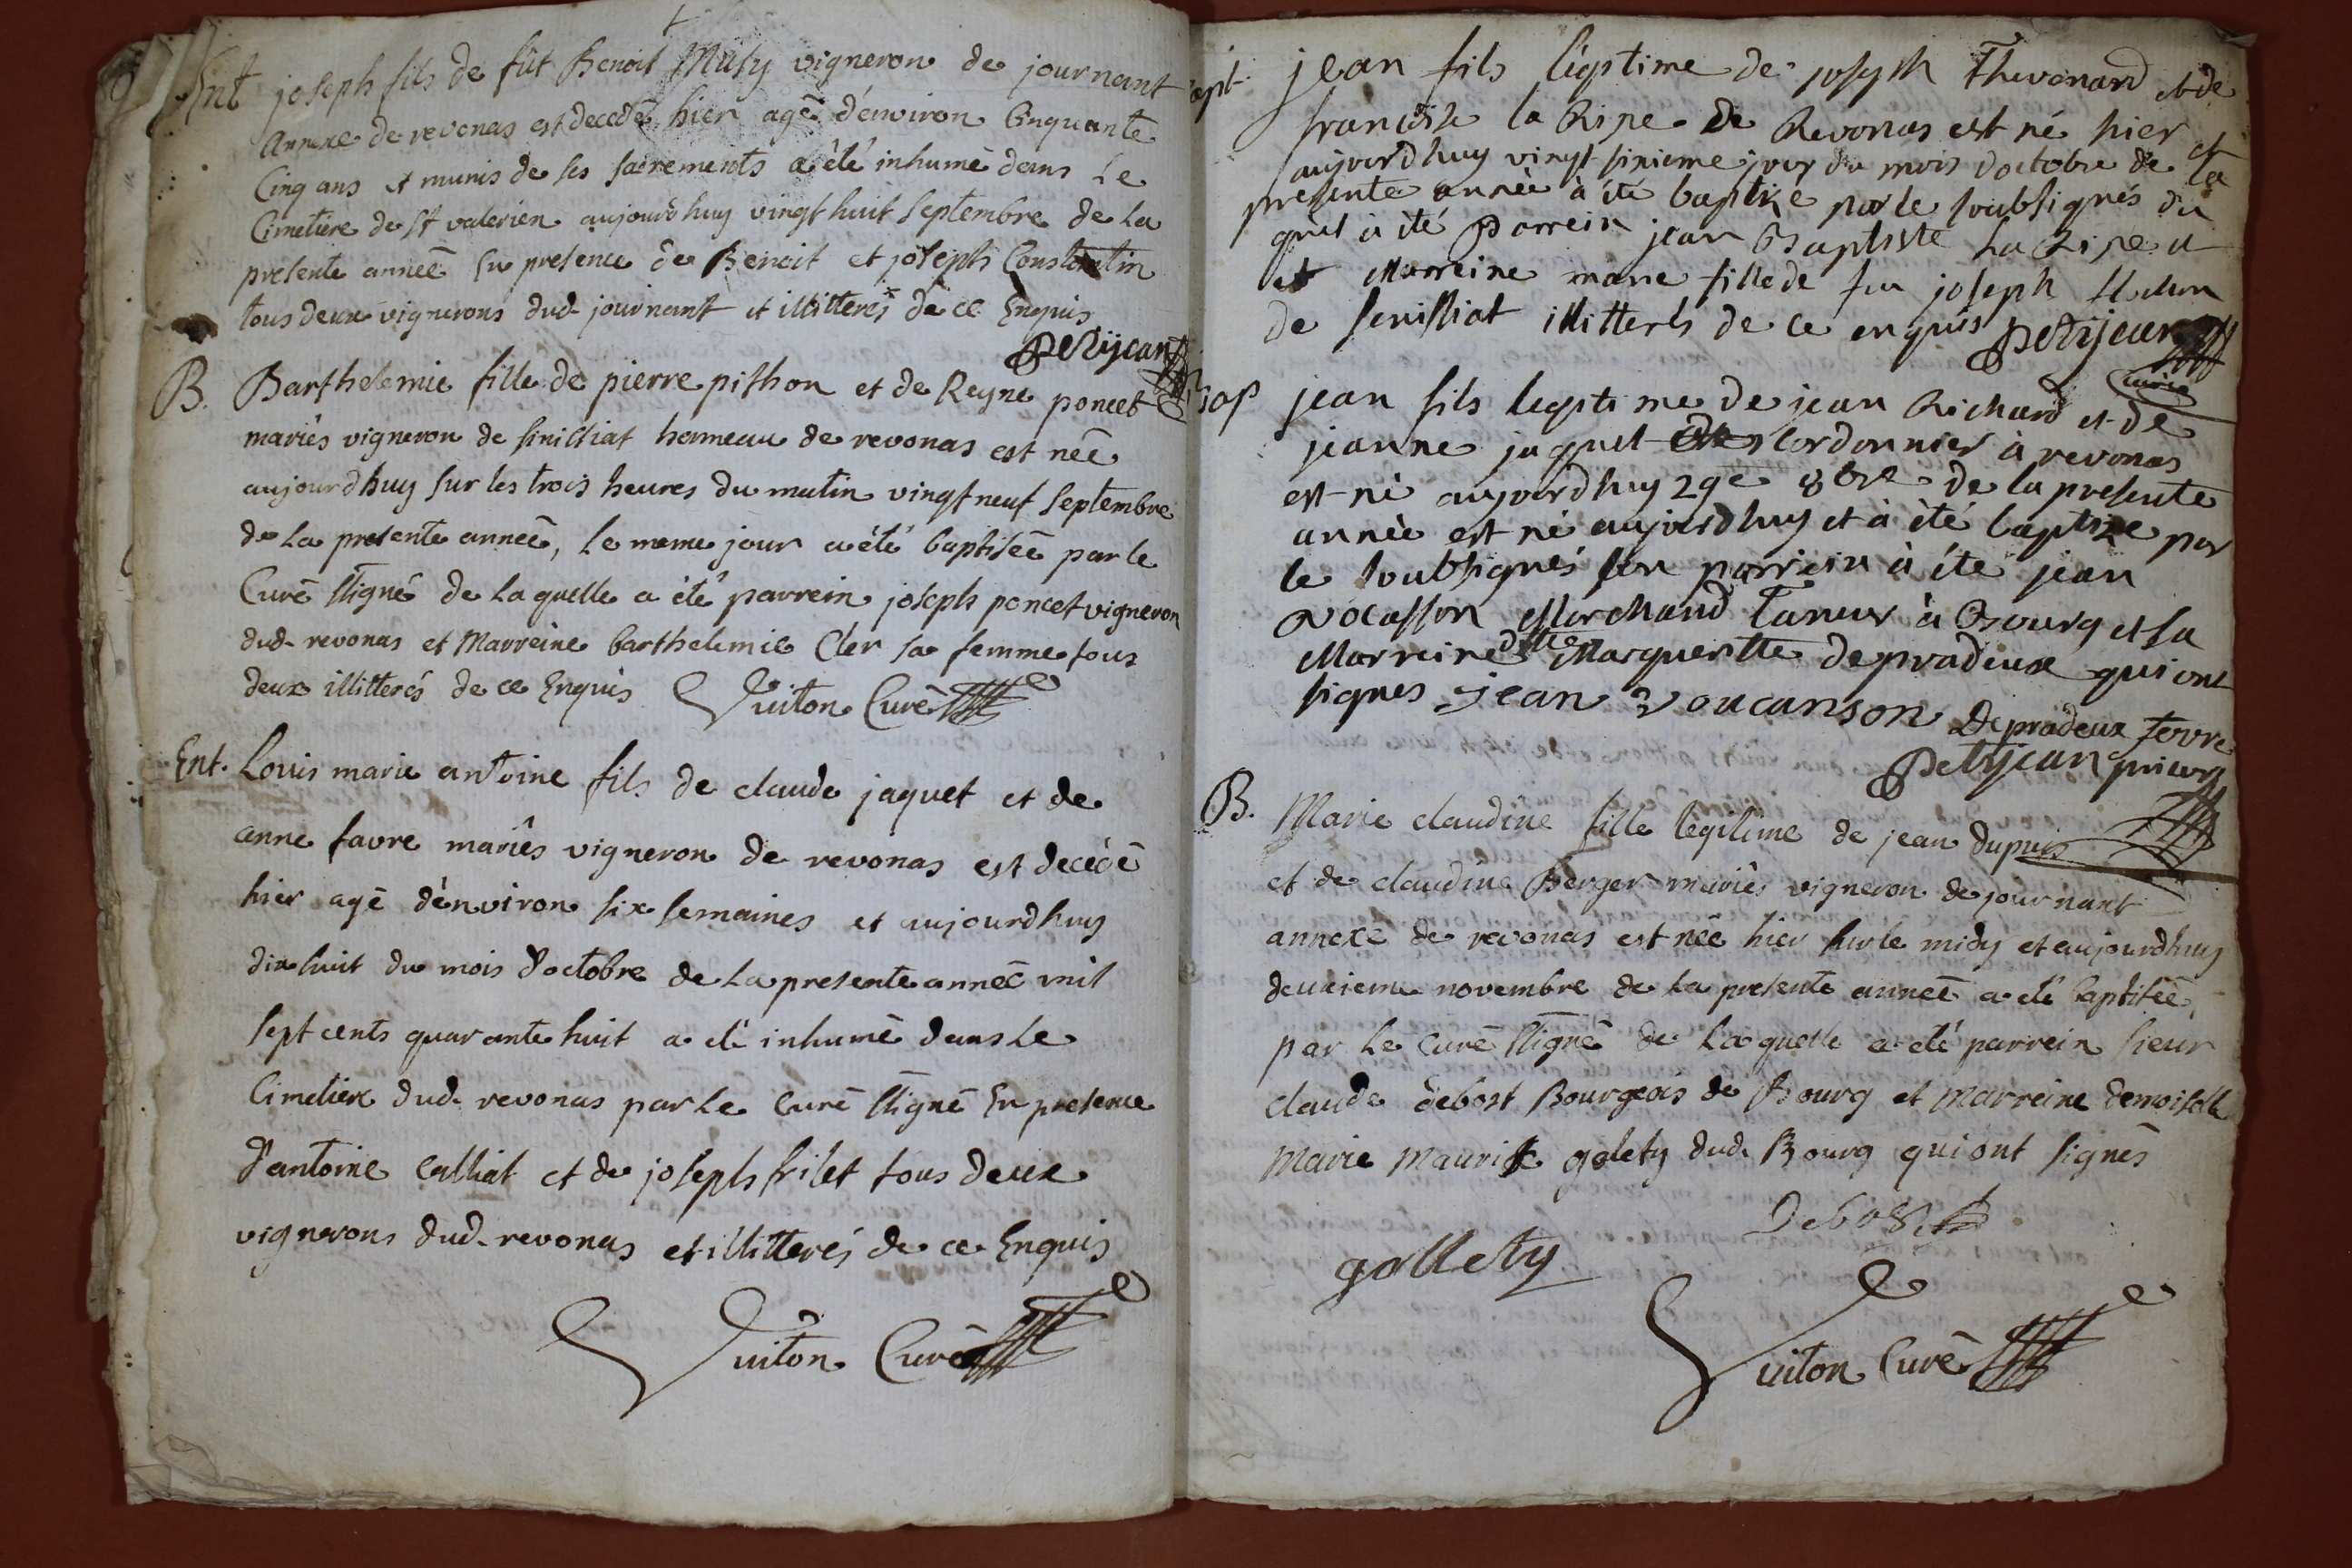 Ent joseph fils de fût Benoit Musy vigneron de journant
annexe de revonas est decedé hier agé d'environ Cinquante
Cinq ans et munis de ses sacrements a été inhumé dans Le
Cimetiere de St valerien aujourdhuy vingt huit Septembre de La
presente année En presence de Benoit et joseph Constantin
tous deux vignerons dud. journant et illitterés de ce Enquis
Petijean
B. Barthelemie fille de pierre pithon et de Reyne poncet
mariés vigneron de sinissiat hameau de revonas est née
aujourdhuy sur les trois heures du matin vingt neuf Septembre
de La presente année, Le meme jour a été baptisée par le
Curé ssigné de Laquelle a été parrein joseph poncet vigneron
dud. revonas et Marreine barthelemie Cler sa femme tous
deux illitterés de ce Enquis Vuiton Curé
Ent. Louis marie antoine fils de claude jaquet et de
anne favre mariés vigneron de revonas est decédé
hier agé d'environ six semaines et aujourdhuy
dix huit du mois d'octobre de La presente année mil
sept cents quarante huit a été inhumé dans Le
Cimetiere dud. revonas par Le Curé ssigné En presence
d'antoine Calliat et de joseph frilet tous deux
vignerons dud. revonas et illitterés de ce Enquis
Vuiton Curé
bapt. jean fils légitime de joseph Thevenard et de
francoise la Ripe de Revonas est né hier et
aujourdhuy vingt sixieme jour du mois doctobre de la
presente année à été baptize par le soubsignés du
quel à été Parrein jean Baptiste La Ripe et
et Marreine marie fille de feu joseph
de senissiat illitterés de ce enquis Petijean
curé
bap jean fils legitime de jean Richard et de
jeanne jaquet cordonnier à revonas
est né aujourdhuy 29e 8bre de la presente
année est né aujourdhuy et à été baptize par
le soubsignés son parrein à été jean
Vocasson Marchand Taneur à Bourg et sa
Marreine dlle Marguerite depradeux qui ont
signes jean Voucanson Depradeux fevre
Petijean prieur
B. Marie claudine fille legitime de jean dupuis
et de claudine Berger mariés vigneron de journant
annexe de revonas est née hier sur le midy et aujourdhuy
deuxieme novembre de La presente année a été baptisée
par Le Curé ssigné de Laquelle a été parrein sieur
claude debost Bourgeois de Bourg et Marreine demoiselle
Marie Maurise golety dud. Bourg qui ont signés
Debost
gollety
Vuiton Curé